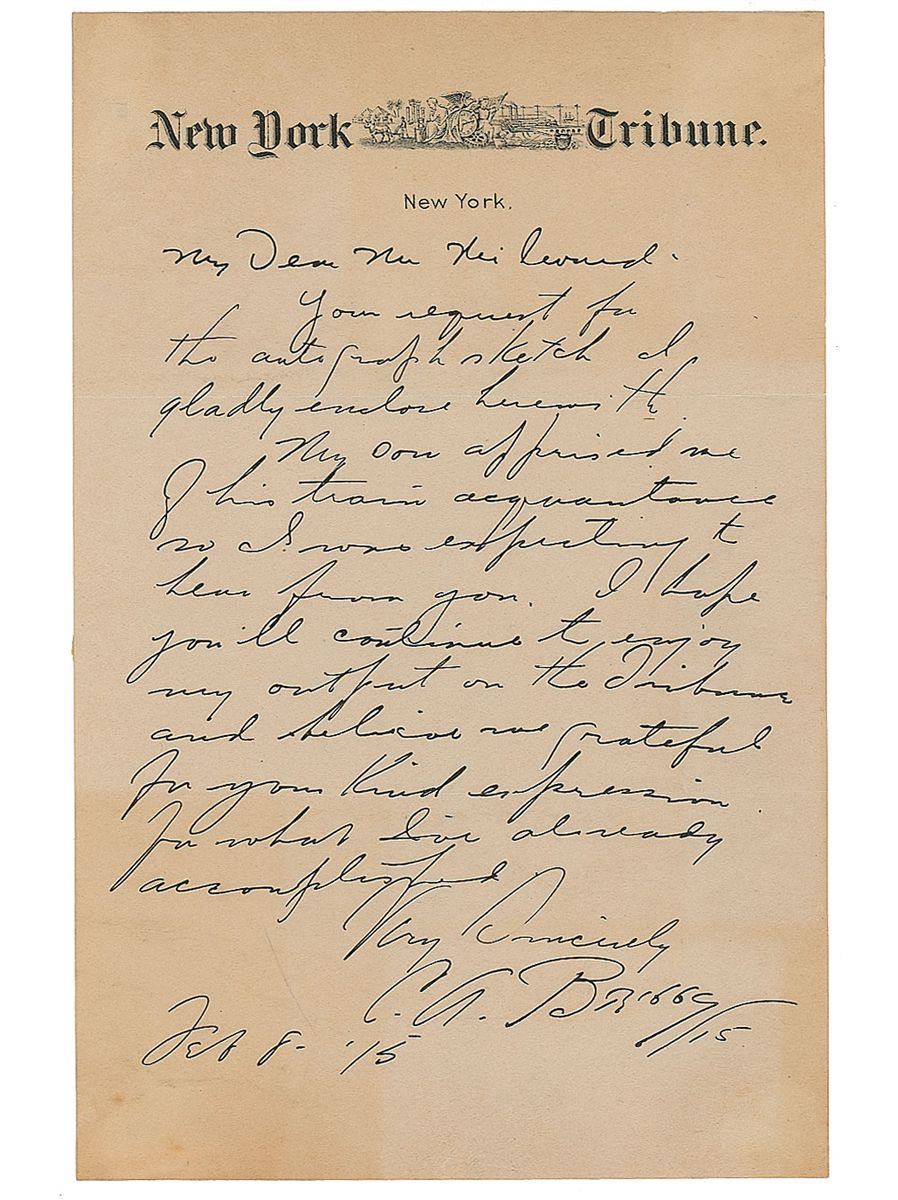 New York Tribune.
New York.
My Dear Mr
Your request for
the autograph sketch I
gladly enclose herewith.
My son apprised me
of his train acquantance
so I was expecting to
hear from you. I hope
you'll continue to enjoy
my output on the Tribune
and believe me grateful
for your kind expression
for what I've already
accomplished.
Very Sincerely
C. A. Briggs/15
Feb 8 - '15